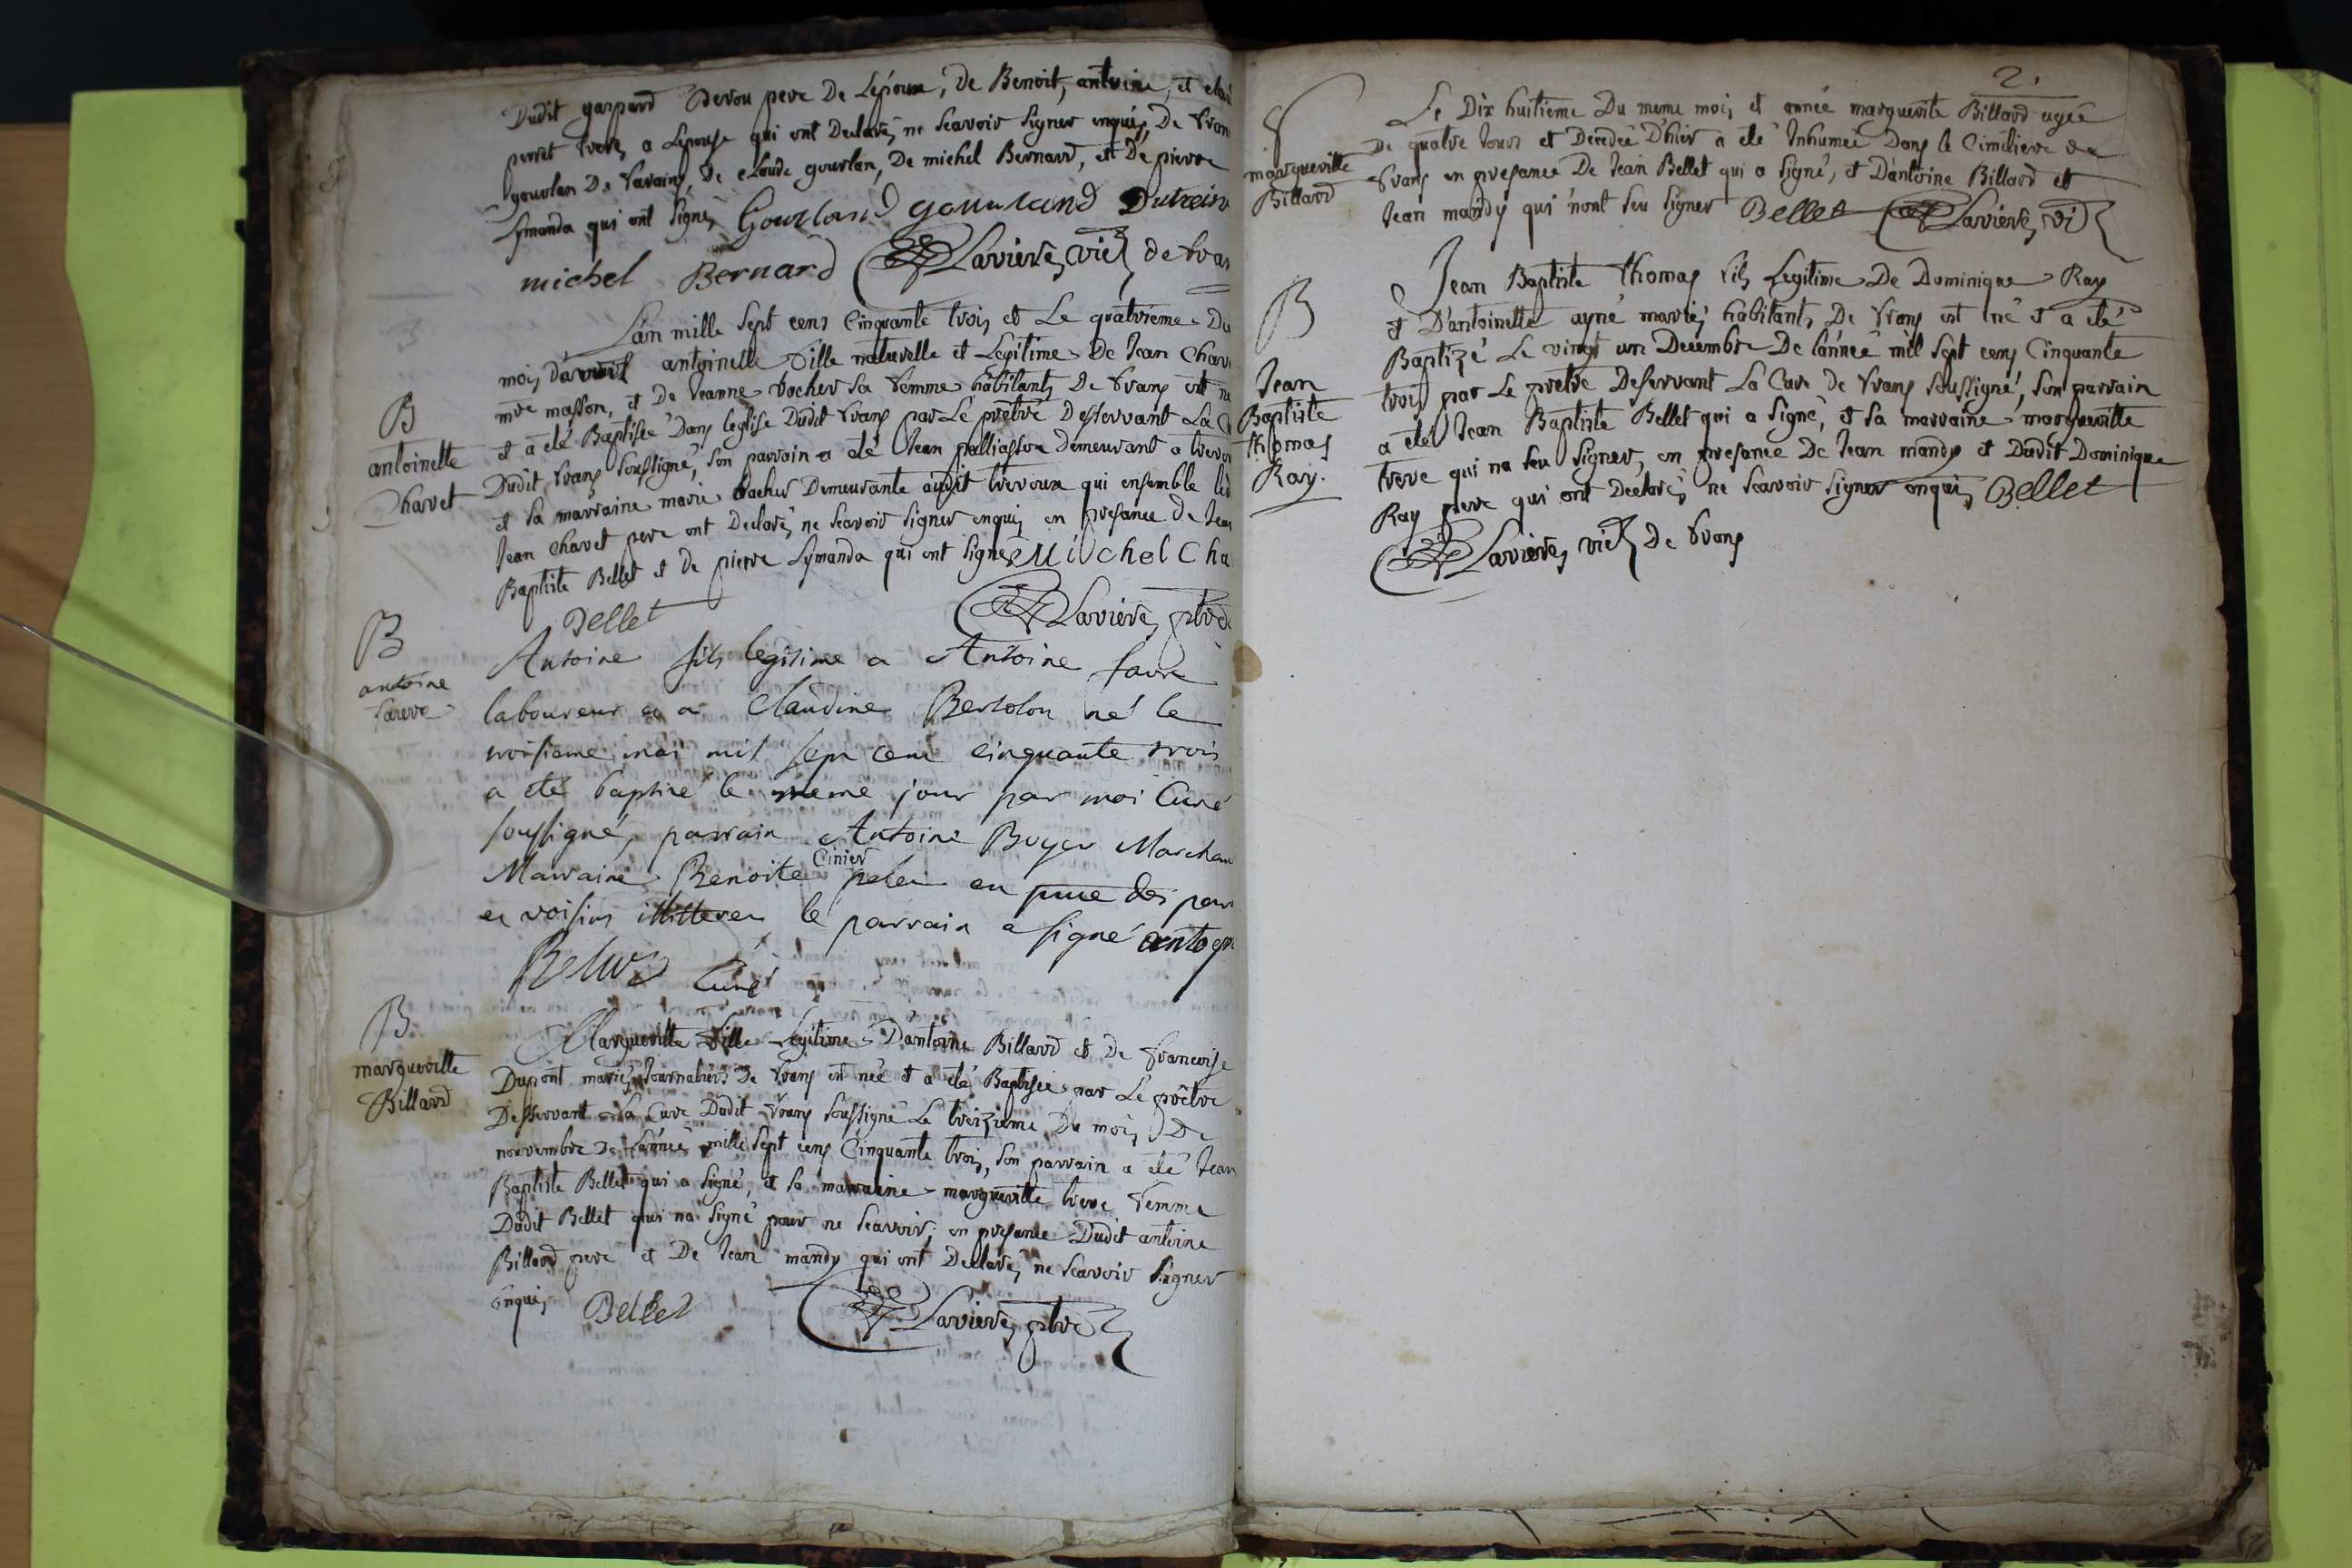 Dudit gaspard Devou pere De Lépoux, De Benoit, antoine, et
perret freres a Lepouse qui ont Declarés ne Scavoir Signer enquis, De
gourlan De Savains, De Claude gourlan, De michel Bernard, et De pierre
Symonda qui ont Signés Gourland gourland Dutreise
michel Bernard Lavieres, vic de
B
antoinette
Charvet
Lan mille Sept cens Cinquante trois et Le quatrieme Du
mois Davril antoinette Fille naturelle et Legitime De Jean
mre masson, et De Jeanne Vocher Sa femme habitants De frans est
et a élé Baptisée Dans leglise Dudit frans par Lé prêtre Desservant La
Dudit frans Soussigné, Son parrain a élé Jean palliasson Demeurant a
et Sa marraine marie Vacher Demeurante audit trevoux qui ensemble
Jean Charvet pere ont Declarés ne Scavoir Signer enquis en presance de
Baptiste Bellet et de pierre Symonda qui ont Signés Michel Cha
Bellet Lavieres, ptre
B
antoine
favre
Antoine fils legitime a Antoine favre
laboureur et a Claudine Bertolon né le
troisieme mai mil sept cent cinquante trois
a eté baptisé le meme jour par moi Curé
soussigné, parrain Antoine Buyer
Marraine Benoite Cinier en pnce des
et voisins illitterez le parrain a signé
Curé
B
margueritte
Billard
Margueritte Fille Legitime Dantoine Billard et De francoise
Dupont mariés Journaliers De frans est née et a élé Baptisée par Le prêtre
Desservant La Cure Dudit frans Soussigné Le treizieme Du mois De
nouvembre De Lannéé mille Sept cens Cinquante trois, Son parrain a élé Jean
Baptiste Bellet qui a Signé, et Sa marraine margueritte treve femme
Dudit Bellet qui na Signé pour ne Scavoir, en presance Dudit antoine
Billard pere et De Jean mandy qui ont Declarés ne Scavoir Signer
enquis Bellet Lavieres, ptre
2.
margueritte
Billard
Le Dix huitieme Du meme mois et année marguerite Billard agée
De quatre Jours et Decedée D'hier a élé Inhumée Dans le Cimitiere de
frans en presance De Jean Bellet qui a Signé, et D'antoine Billard et
Jean mandy qui n'ont Seu Signer Bellet Lavieres, vi
B
Jean
Baptiste
thomas
Ray.
Jean Baptiste thomas fils Legitime De Dominique Ray
et D'antoinette ayné mariés habitants De frans est né et a élé
Baptizé Le vingt un Decembre De lannéé mil Sept cens Cinquante
trois par Le prêtre Deservant La Cure de frans Soussigné, Son parrain
a élé Jean Baptiste Bellet qui a Signé, et Sa marraine margueritte
treve qui na Seu Signer, en presance De Jean mandy et Dudit Dominique
Ray pere qui ont Declarés ne Scavoir Signer enquis Bellet
Lavieres, vic de frans